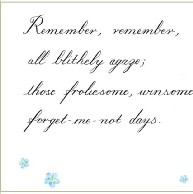 Remember, remember,
all blithely agaze;
those frolicsome, winsome
forget-me-not days.